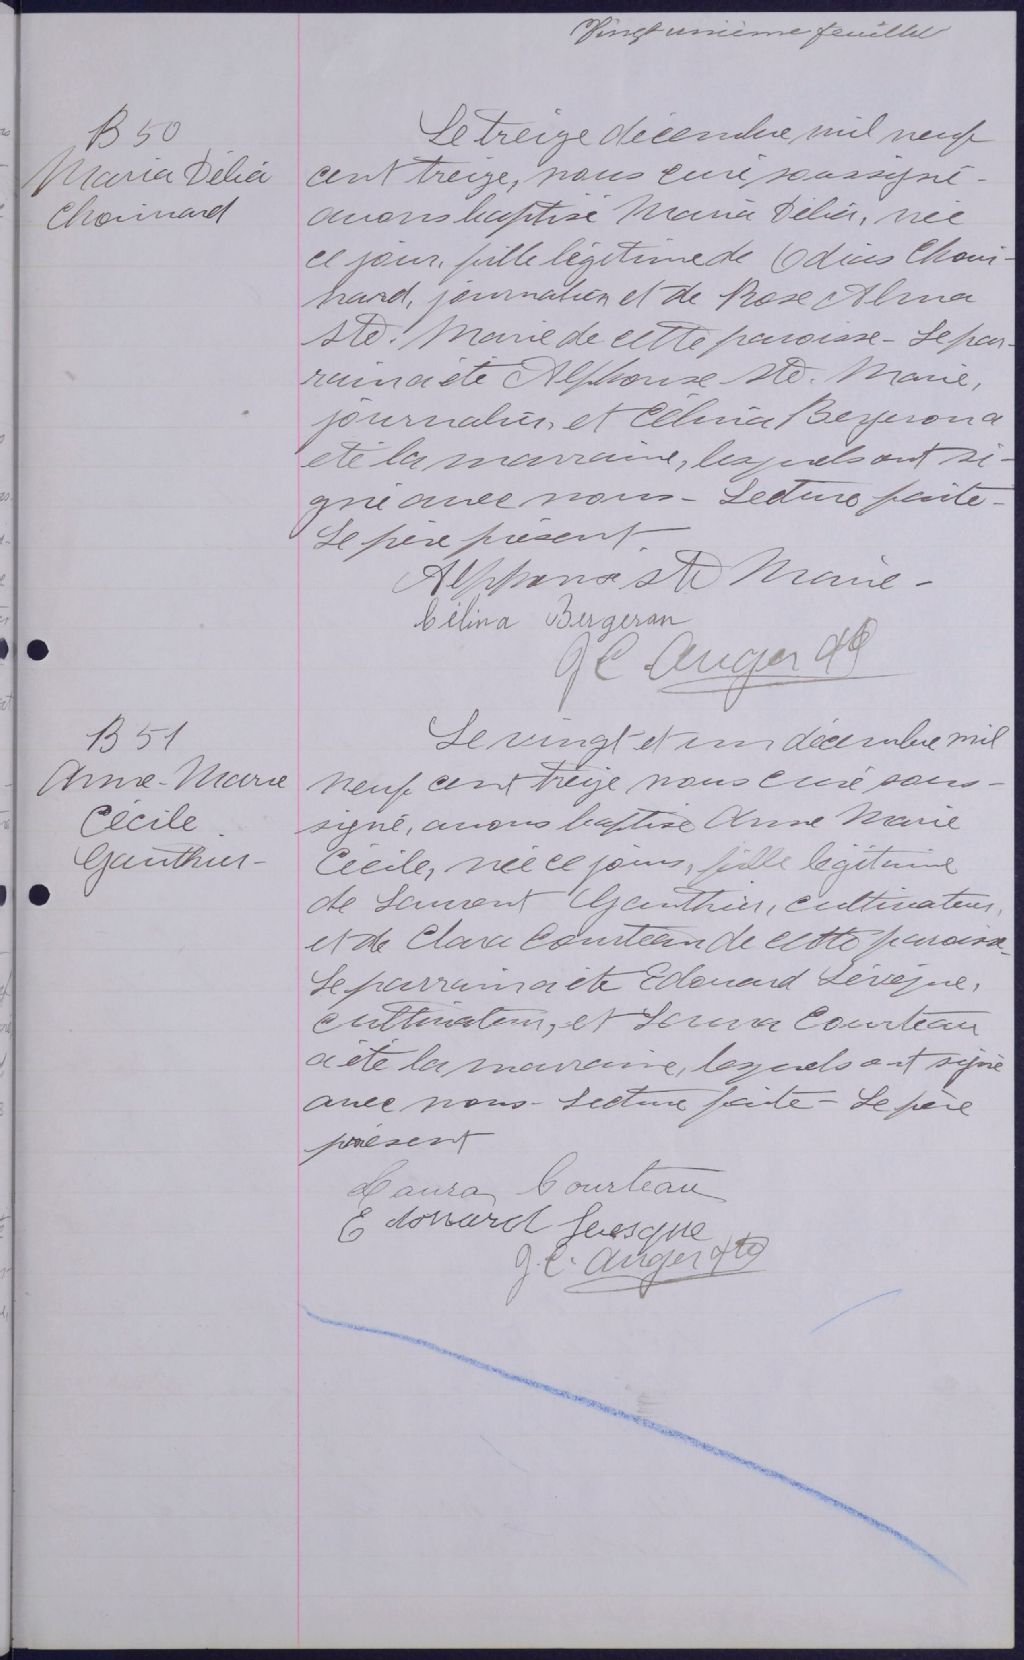 Vingt unième feuillet
B 50
Maria Délia
Choinard
Le treize décembre mil neuf
cent treize, nous curé soussigné
avons baptisé Maria Délia, née
ce jour, fille légitime de Odias Choui-
nard, journalier et de Rose Alma
Ste. Marie de cette paroisse - Le par-
rain a été Alphonse Ste. Marie,
journalier, et Célina Bergeron a
été la marraine, lesquels ont si-
gné avec nous - Lecture faite -
Le père présent
Alphonse Ste Marie -
Célina Bergeron
J C Auger
B 51
Anne-Marie
Cécile
Gauthier -
Le vingt et un décembre mil
neuf cent treize nous curé sous-
signé, avons baptisé Anne Marie
Cécile, née ce jour, fille légitime
de Laurent Gauthier, cultivateur,
et de Clara Courteau de cette paroisse
Le parrain a été Edouard Lévêque,
cultivateur, et Laura Courteau
a été la marraine, lesquels ont signé
avec nous - Lecture faite - Le père
présent
Laura Courteau
Edouard Levesque
J. C. Auger